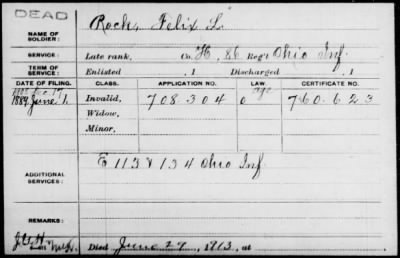 DEAD
NAME OF SOLDIER: Rock, Felix L.
SERVICE: Late rank, Co. H, 86 Reg't Ohio Inf.
TERM OF SERVICE: Enlisted , 1 Discharged , 1
DATE OF FILING. CLASS. APPLICATION NO. LAW. CERTIFICATE NO.
1889 June 1. Invalid, 708304 O 760.623
Widow,
Minor,
ADDITIONAL SERVICES: E 113 & 134 Ohio Inf
REMARKS:
Died June 27, 1913, at